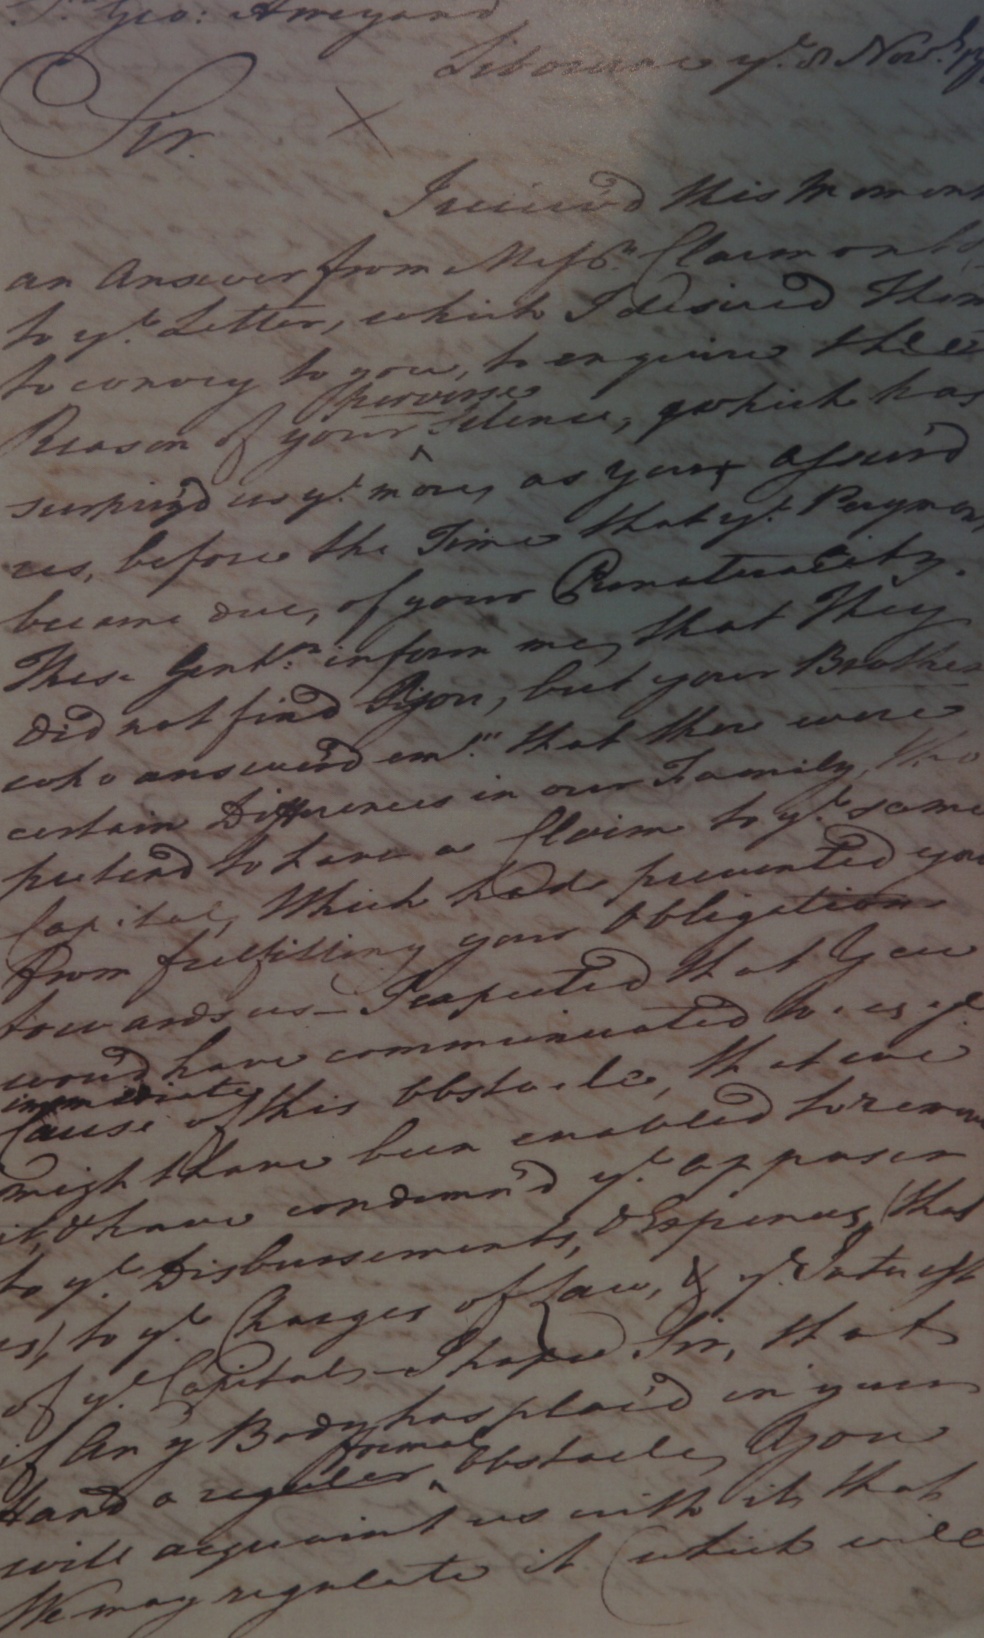 Geo: Amyand
ye. 8 Novr.
Sir.
I receiv'd this Moment
an Answer from Messrs. Clairmont
to ye. Letter, which I desired them
to convey to you, to enquire the
perverse
Reason of your Silence, which has
surpriz'd us ye. more, as you assur'd
us, before the Time that ye. Payment
became due, of your Punctuality.
These Gentn. inform me, that They
did not find You, but your Brother
who answer'd em "that there were
certain Differences in our Family, who
pretend to have a Claim to ye. same
Capital, Which had prevented you
from fulfilling your Obligations
towards us— I expected that You
would have communicated to us ye.
immediate
Cause of this Obstacle, that we
might have been enabled to remove
it, & have condemn'd ye. opposer
to ye. Disbursements, & Expences, (that
is) to ye. Charges of Law, & ye. Interest
of ye. Capital— I hope Sir, that
if Any Body has plac'd in your
formal
Hand a regular Obstacle, You
will acquaint us with it, that
We may regulate it (which will